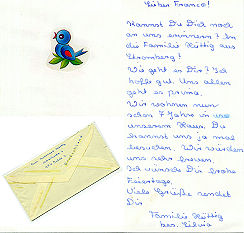 Lieber Franco!
Kannst Du Dich noch
an uns erinnern? In
die Familie Hüttig aus
Stromberg!
Wie geht es Dir? Ich
hoffe gut. Uns allen
geht es prima.
Wir wohnen nun
schon 7 Jahre in
unserem Haus. Du
kannst uns ja mal
besuchen. Wir würden
uns sehr freuen.
Ich wünsch Dir frohe
Feiertage.
Viele Grüße sendet
Dir
Familie Hüttig
bes. Silvia